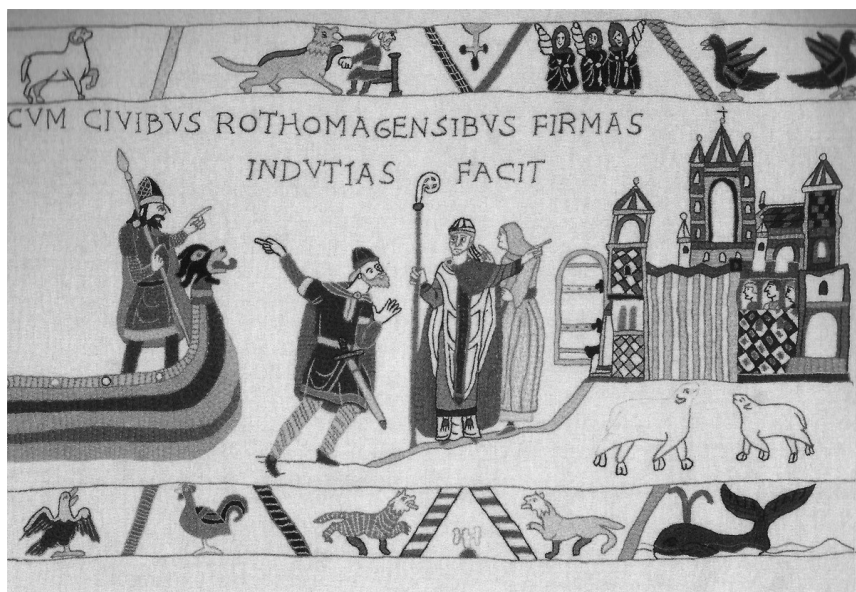 CVM CIVIBVS ROTHOMAGENSIBVS FIRMAS
INDVTIAS FACIT